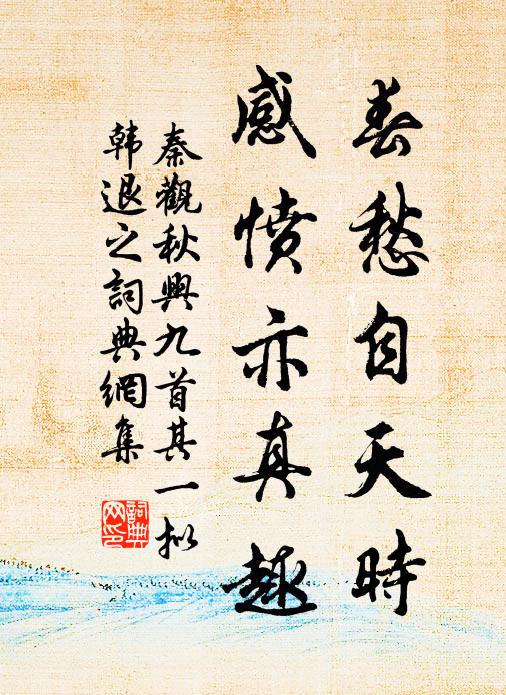 春愁自天時
感憤亦真趣
秦觀秋興九首其一拟
韓退之詞典網集
詞典
网印